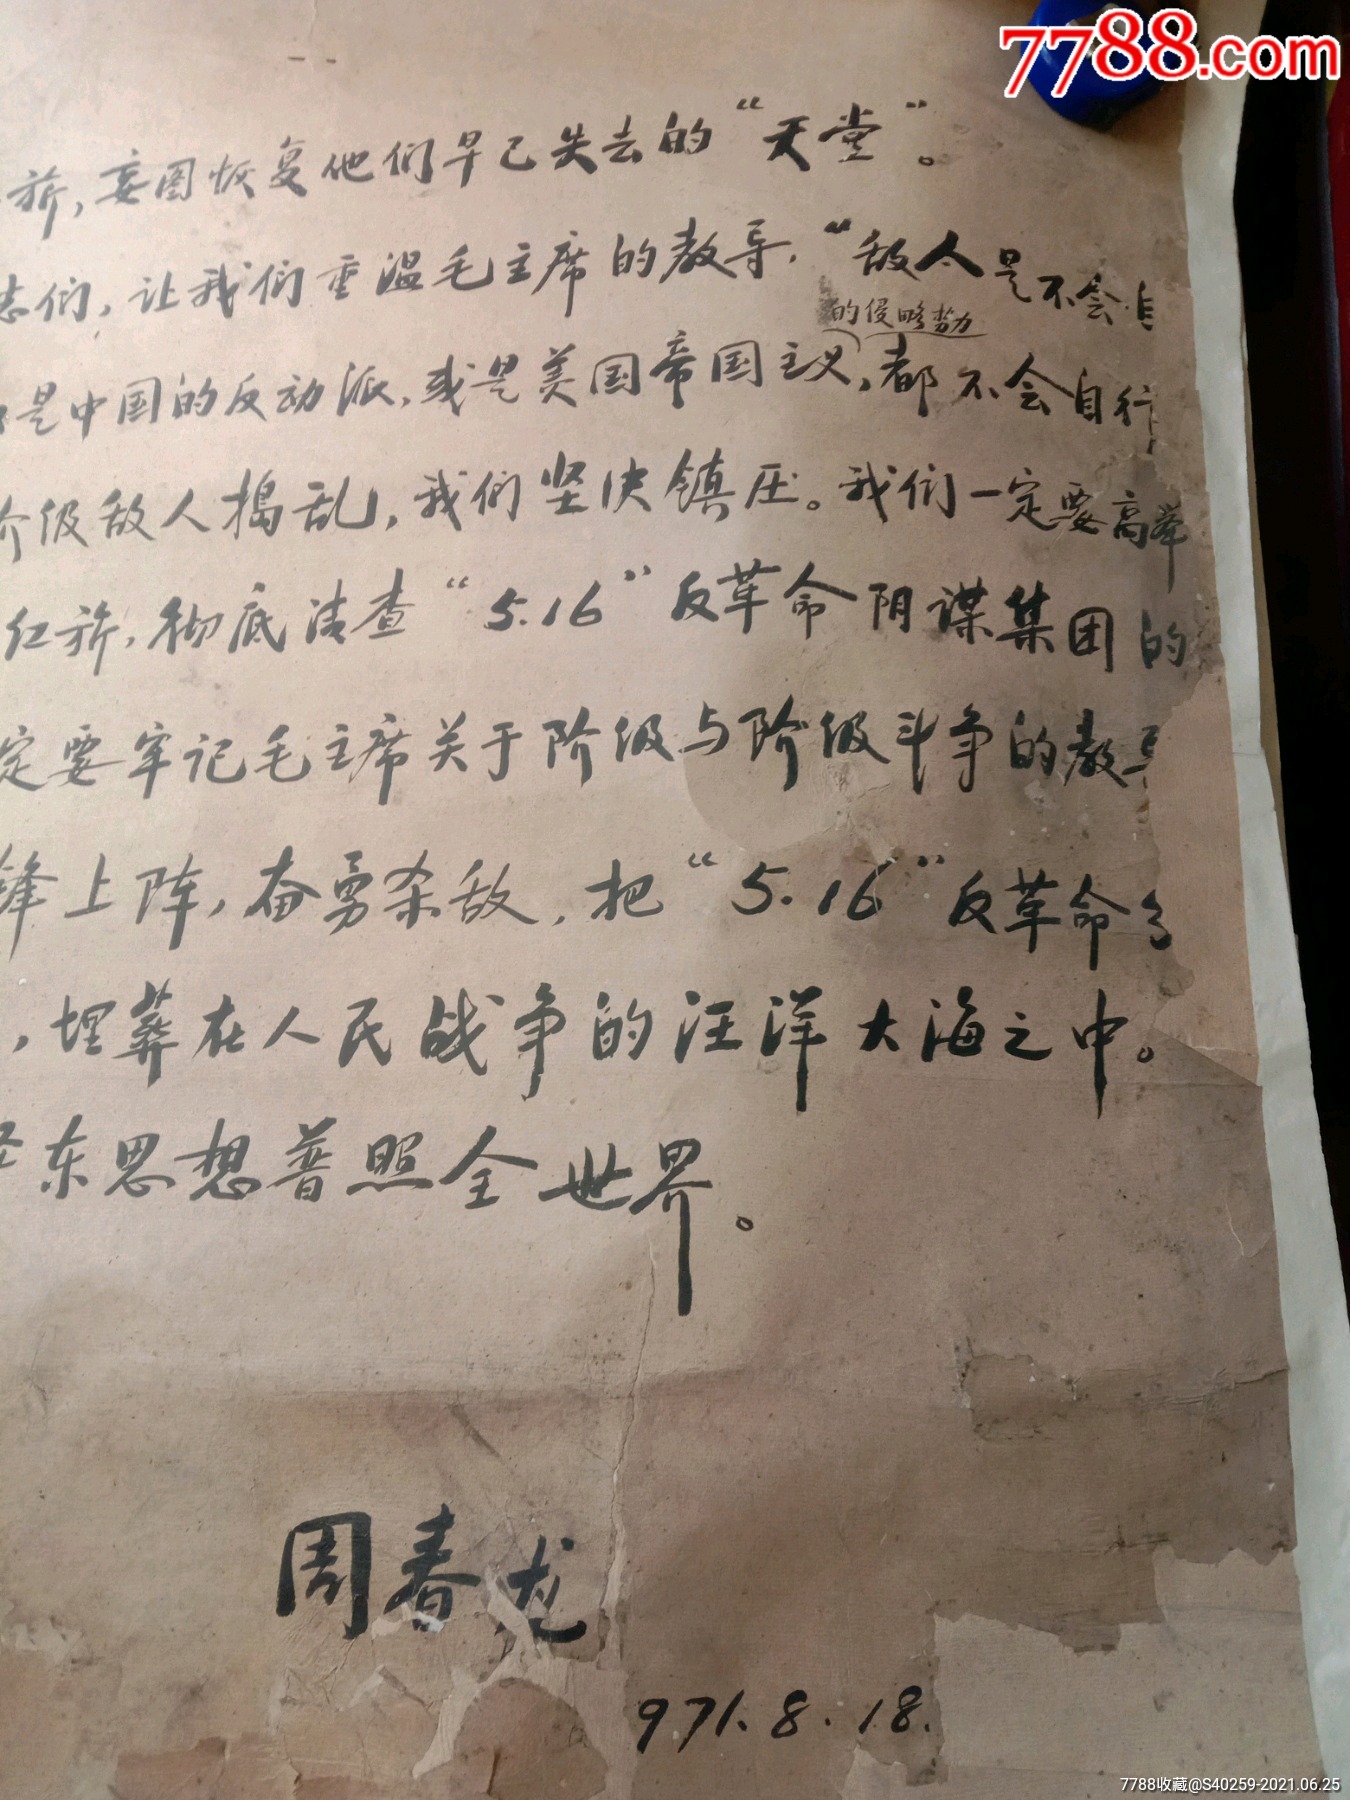 7788.com
旂，妄图恢复他们早已失去的“天堂”。
志们，让我们重温毛主席的教导，“敌人是不会自
的侵略势力
是中国的反动派，或是美国帝国主义，都不会自行
阶级敌人捣乱，我们坚决镇压。我们一定要高举
红旂，彻底清查“5.16”反革命阴谋集团的
定要牢记毛主席关于阶级与阶级斗争的教导
锋上阵，奋勇杀敌，把“5.16”反革命
，埋葬在人民战争的汪洋大海之中。
泽东思想普照全世界。
周春龙
971.8.18.
7788收藏@S40259-2021.06.25